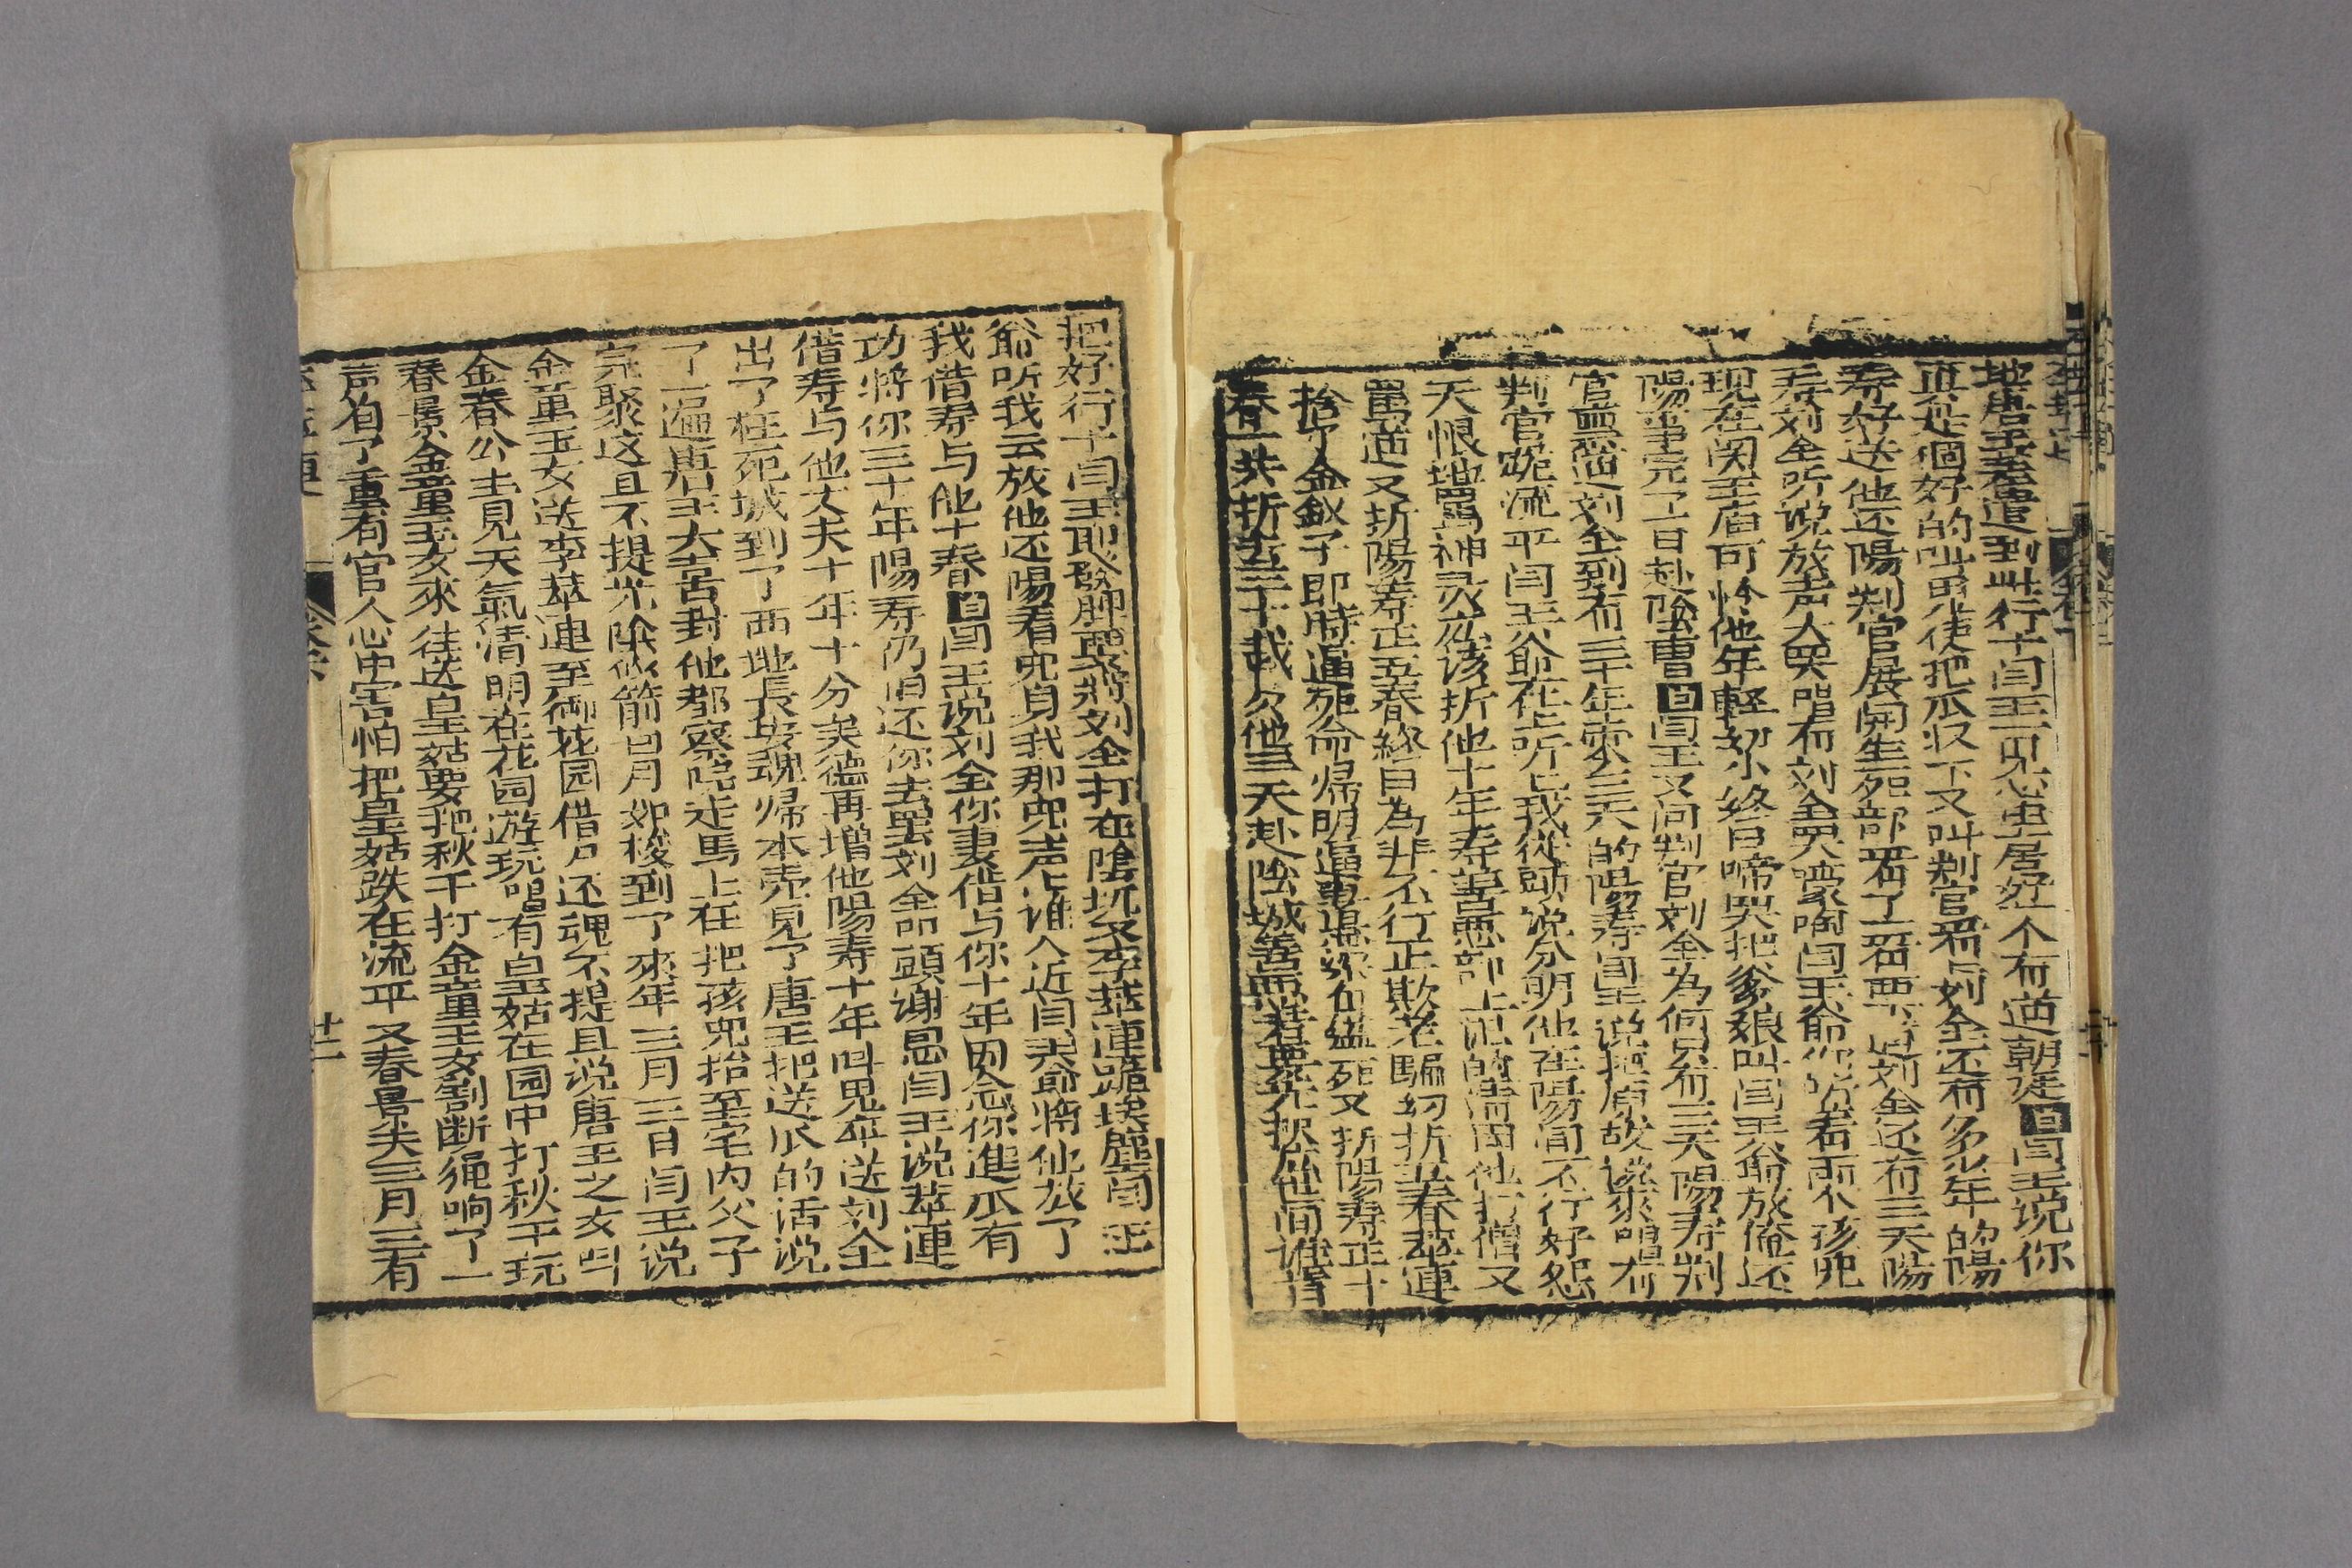 地唐王差遣到此行十闫王一见心中居好个有道朝廷白闫王说你
真是個好的叫鬼使把瓜收下又叫判官看刘全还有多少年的陽
寿好送他还陽判官展開生死部看了一看刘全还有三天陽
寿刘全听说放声大哭唱有刘全哭嚎啕闫王爺你听着兩个孩兒
现在関王庙可怜他年軽幼小終日啼哭把爹娘叫闫王爺放俺还
陽事完了一日赴陰曹白闫王又问判官刘全為何只有三天陽寿判
官善惡刘全到有三十年零三天的陽寿闫王说把原故说來唱有
判官跪流平闫王爺在上听上我從頭说分明他在陽间不行好怨
天恨地罵神灵应该折他十年寿善惡部上记的清因他打僧又
罵道又折陽寿正五春終日為非不行正欺老騙幼折五春翠連
捨了金釵子即時逼死命帰明逼死又折陽寿正十
春一共折去三十載欠他三天赴陰城善惡
把好行十闫王耶發脾聖將刘全打在陰城又李翠連跪埃塵闫王
爺听我云放他还陽看兒身我那兒老誰人近闫天爺將他放了
我借寿与他十春白闫王说刘全你妻借与你十年因念你進瓜有
功將你三十年陽寿仍旧还你去罢刘全叩頭谢恩闫王说翠連
借寿与他丈夫十年十分美德再增他陽寿十年叫鬼卒送刘全
出了枉死城到了西地長安魂帰本壳見了唐王把送瓜的活说
了一遍唐王大喜封他都察院走馬上任把孩兒抬至宅内父子
完聚这且不提光陰似箭日月如梭到了來年三月三日闫王说
金童玉女送李翠連至御花园借尸还魂不提且说唐王之女叫
金春公主見天氣清明在花园遊玩唱有皇姑在园中打秋千玩
春景金童玉女來往送皇姑要把秋千打金童玉女割断绳响了一
声有了重有官人心中害怕把皇姑跌在流平又春景天三月三有
廿一